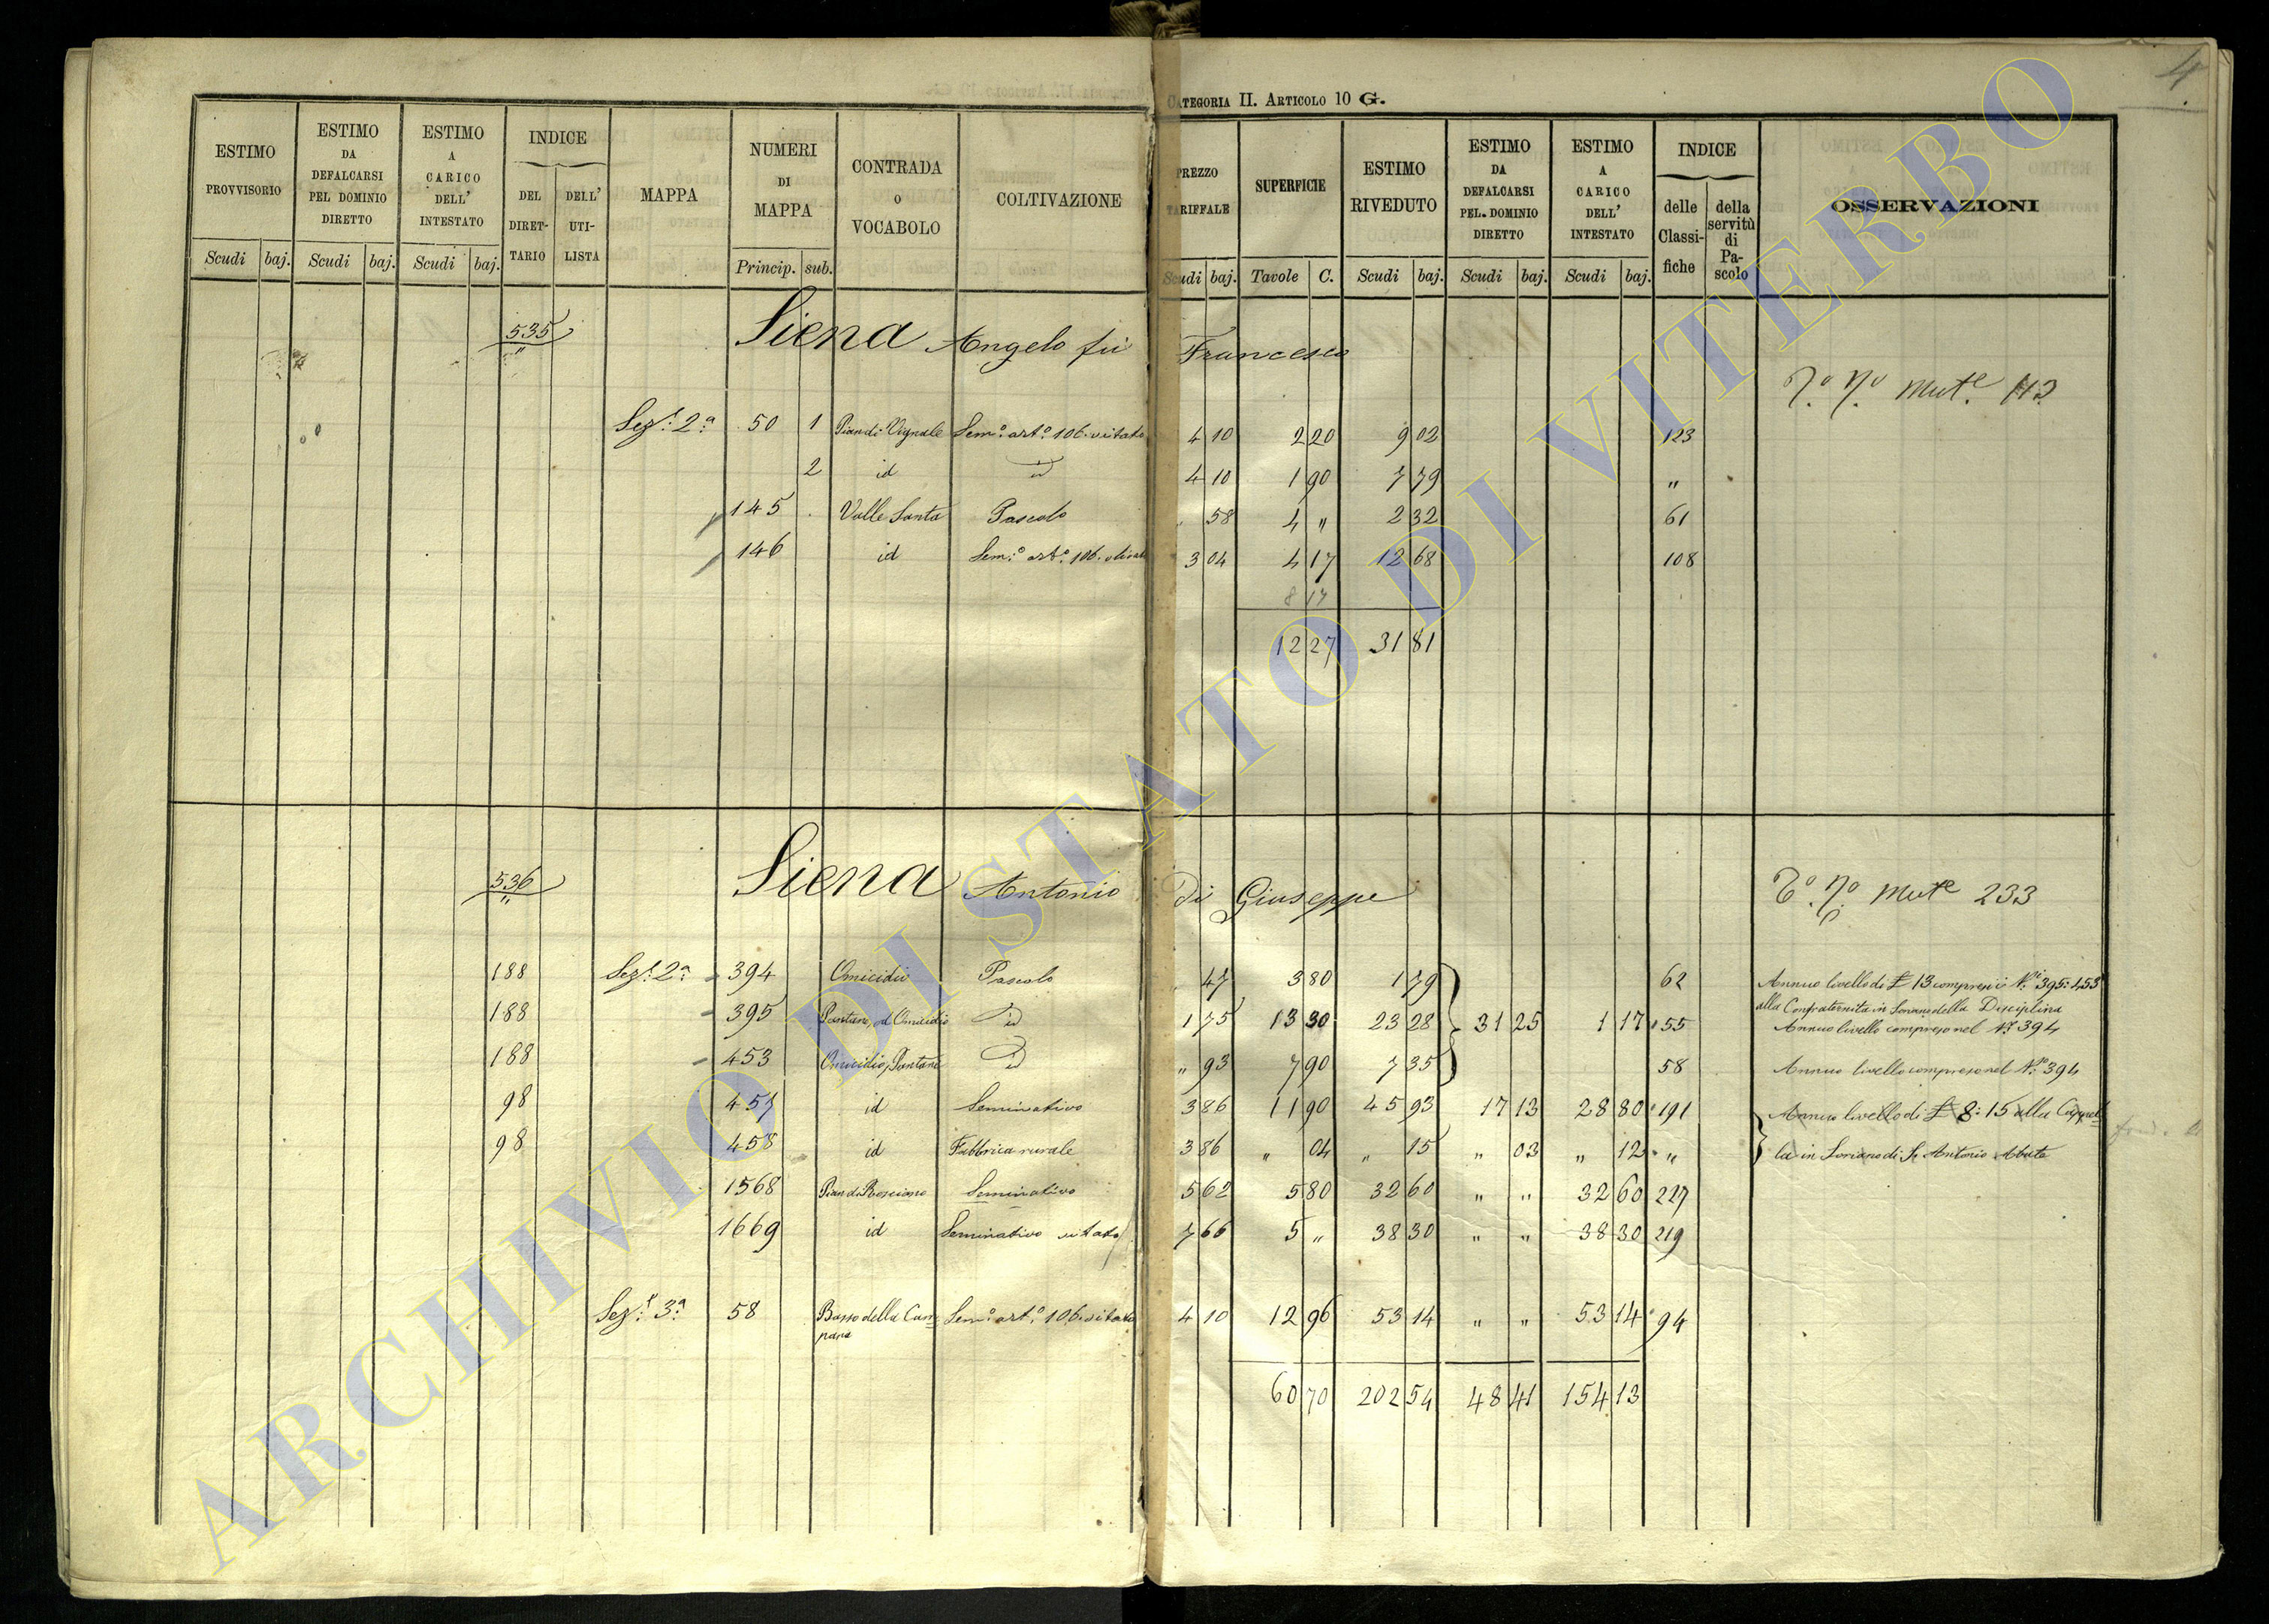 4
CATEGORIA II. ARTICOLO 10 G.
ESTIMO PROVVISORIO Scudi baj.
ESTIMO DA DEFALCARSI PEL DOMINIO DIRETTO Scudi baj.
ESTIMO A CARICO DELL' INTESTATO Scudi baj.
INDICE DEL DIRETTARIO DELL' UTILISTA
MAPPA
NUMERI DI MAPPA Princip. sub.
CONTRADA o VOCABOLO
COLTIVAZIONE
PREZZO TARIFFALE Scudi baj.
SUPERFICIE Tavole C.
ESTIMO RIVEDUTO Scudi baj.
ESTIMO DA DEFALCARSI PEL DOMINIO DIRETTO Scudi baj.
ESTIMO A CARICO DELL' INTESTATO Scudi baj.
INDICE delle Classifiche della servitù di Pascolo
OSSERVAZIONI
535 Siena Angelo fu Francesco
Mut.e 113
Sez.e 2a 50 1 Pian di Vignale Sem.o art.o 106. vitato 4 10 2 20 9 02 123
2 id id 4 10 1 90 7 79 "
145 Valle Santa Pascolo " 58 4 " 2 32 61
146 id Sem.o art.o 106. olivato 3 04 4 17 12 68 108
8 17
12 27 31 81
536 Siena Antonio di Giuseppe
Mut.e 233
188 Sez.e 2a 394 Omicidio Pascolo " 47 3 80 1 79 62 Annuo livello di £ 13 compresi i N.i 395: 453 alla Confraternita in Soriano della Disciplina
188 395 Pantane, ed Omicidio id 1 75 13 30 23 28 31 25 1 17 55 Annuo livello compreso nel N.o 394
188 453 Omicidio, Pantane id " 93 7 90 7 35 58 Annuo livello compreso nel N.o 394
98 457 id Seminativo 3 86 11 90 45 93 17 13 28 80 191 Annuo livello di £ 8: 15 alla Cappel=
98 458 id Fabbrica rurale 3 86 " 04 " 15 " 03 " 12 " la in Soriano di S. Antonio Abate
1568 Pian di Rosciano Seminativo 5 62 5 80 32 60 " " 32 60 227
1669 id Seminativo vitato 7 66 5 " 38 30 " " 38 30 219
Sez.e 3a 58 Basso della Campana Sem.o art.o 106. vitato 4 10 12 96 53 14 " " 53 14 94
60 70 202 54 48 41 154 13
ARCHIVIO DI STATO DI VITERBO